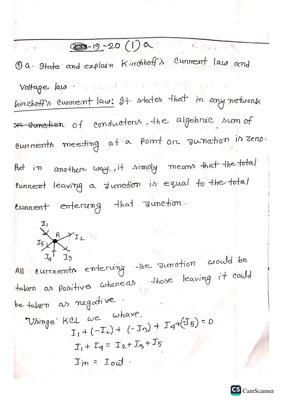 -19-20 (1) a
① a. State and explain Kirchhoff's current law and
Voltage law.
Kirchoff's current law: It states that in any network
of conductors, the algebric sum of
currents meeting at a point or junction is zero.
Put in another way, it simply means that the total
current leaving a junction is equal to the total
current entering that junction.
I₁
A
I₂
I₅
I₄ I₃
All currents entering the junction would be
taken as positives whereas those leaving it could
be taken as negative.
Using KCL we whave,
I₁ + (-I₂) + (-I₃) + I₄ + (-I₅) = 0
I₁ + I₄ = I₂ + I₃ + I₅
Iin = Iout.
CS CamScanner